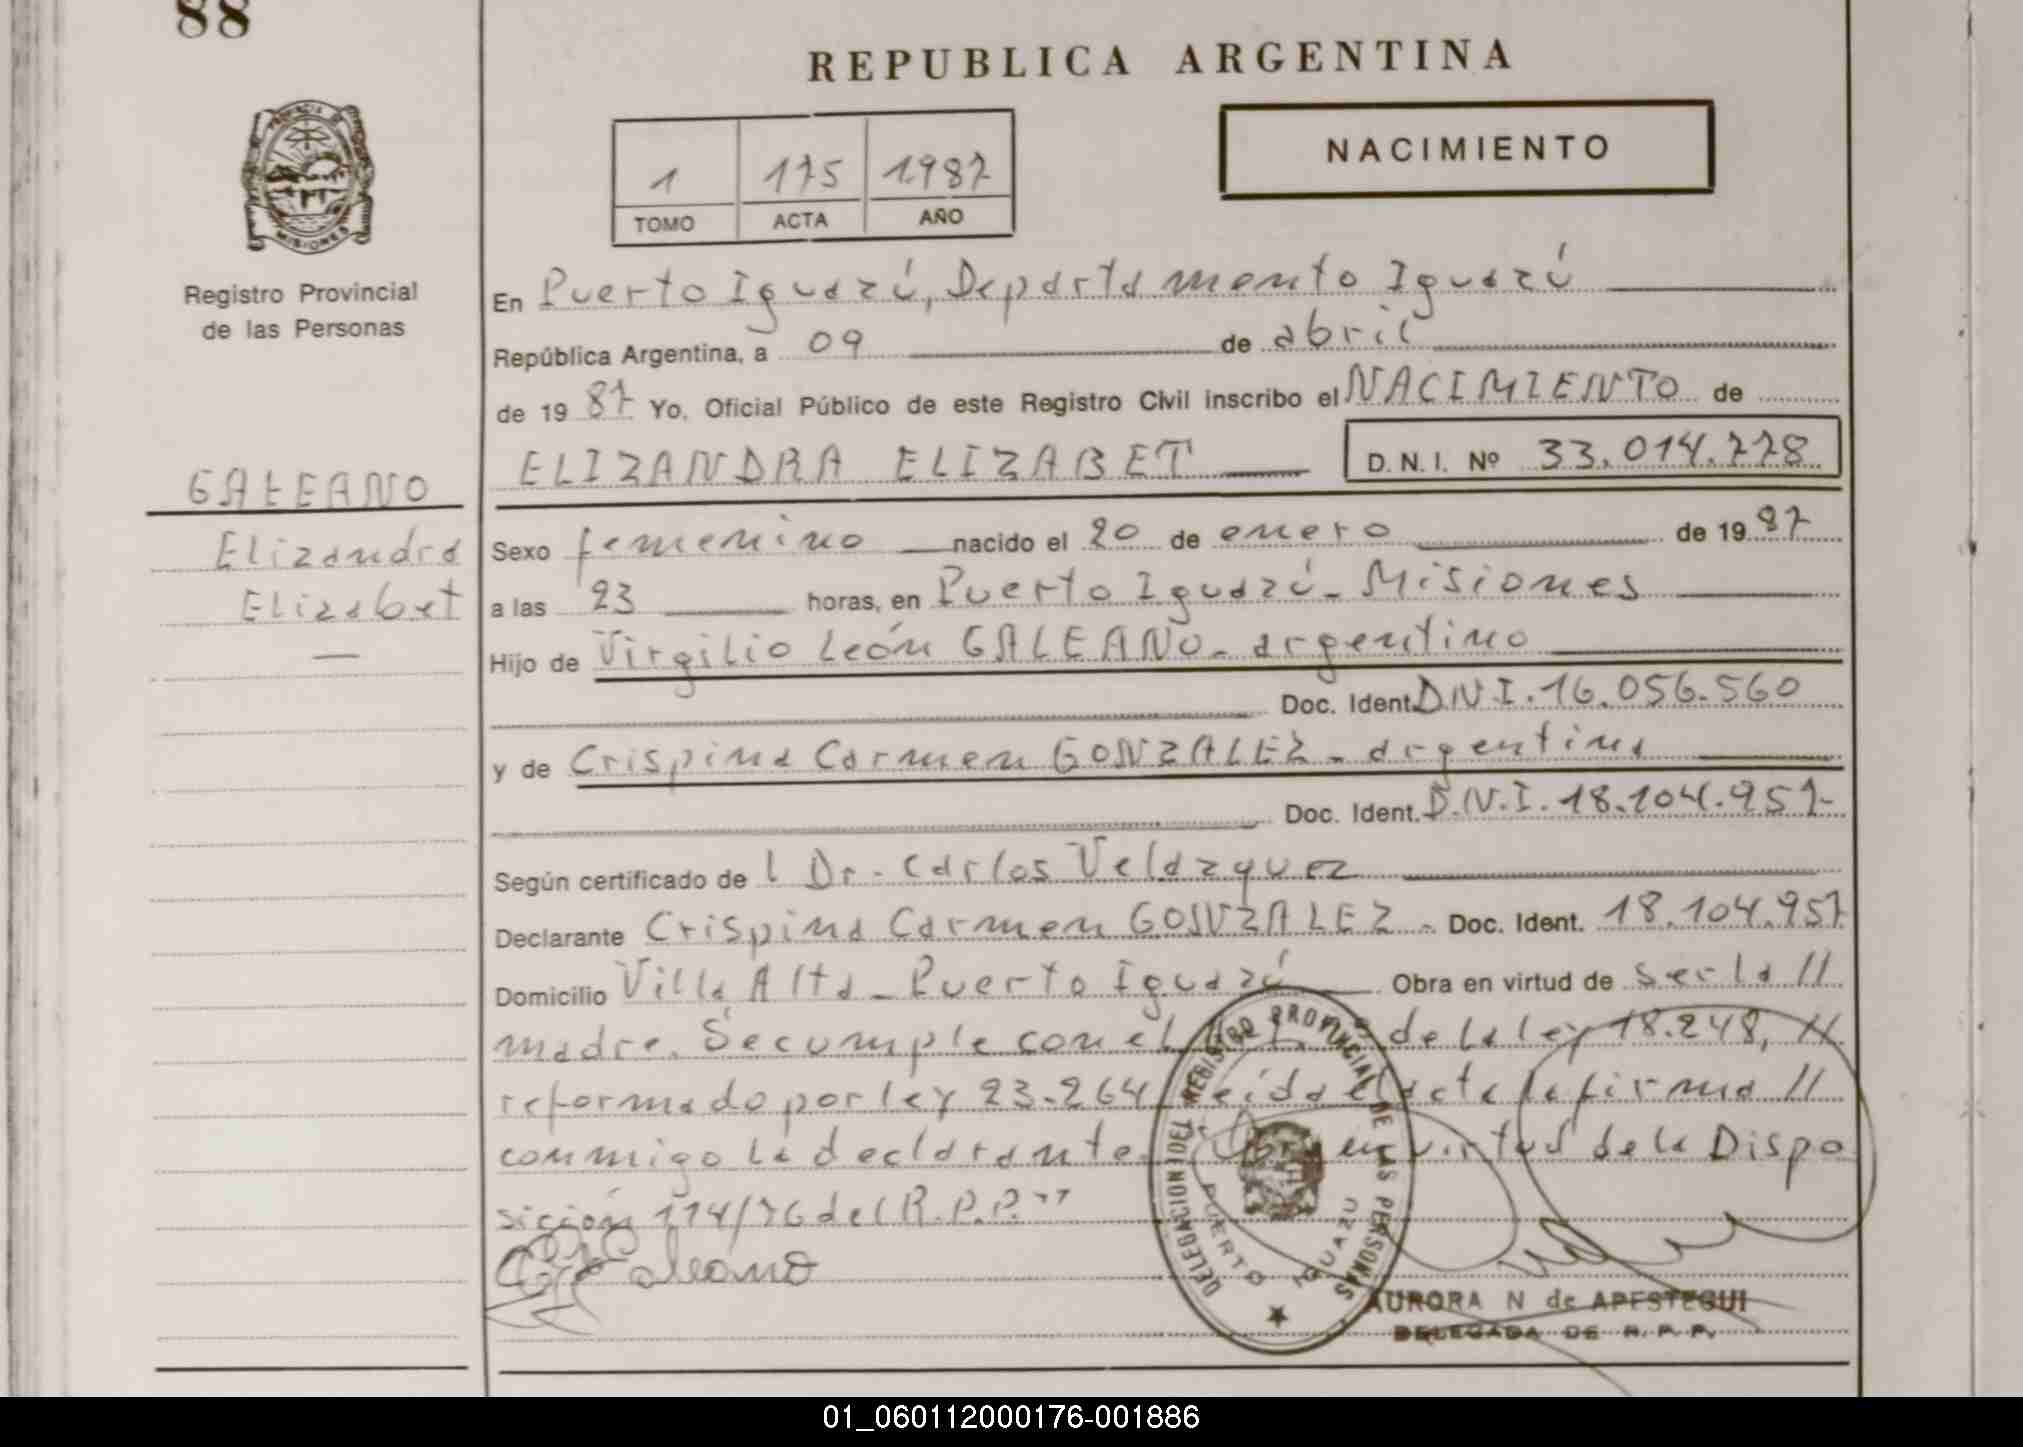 88
REPUBLICA ARGENTINA
NACIMIENTO
1 175 1987
TOMO ACTA AÑO
PROVINCIA DE
MISIONES
Registro Provincial
de las Personas
GALEANO
Elizandra
Elizabet
En Puerto Iguazú, Departamento Iguazú
República Argentina, a 09 de abril
de 19 87 Yo, Oficial Público de este Registro Civil inscribo el NACIMIENTO de
ELIZANDRA ELIZABET D.N.I. Nº 33.014.778
Sexo femenino nacido el 20 de enero de 19 87
a las 23 horas, en Puerto Iguazú - Misiones
Hijo de Virgilio León GALEANO - argentino
Doc. Ident. D.N.I. 16.056.560
y de Crispina Carmen GONZALEZ - argentina
Doc. Ident. D.N.I. 18.104.957-
Según certificado de l Dr. Carlos Velazquez
Declarante Crispina Carmen GONZALEZ - Doc. Ident. 18.104.957
Domicilio Villa Alta - Puerto Iguazú Obra en virtud de ser la //
madre. Se cumple con el de la ley 18.248, //
reformado por ley 23.264 Leída el acta la firma //
conmigo la declarante. "Obra en virtud de la Dispo
sición 114/76 del R.P.P."
Galeano
DELEGACION DEL REGISTRO PROVINCIAL DE LAS PERSONAS
PUERTO IGUAZU
AURORA N de APESTEGUI
DELEGADA DE R.P.P.
01_060112000176-001886